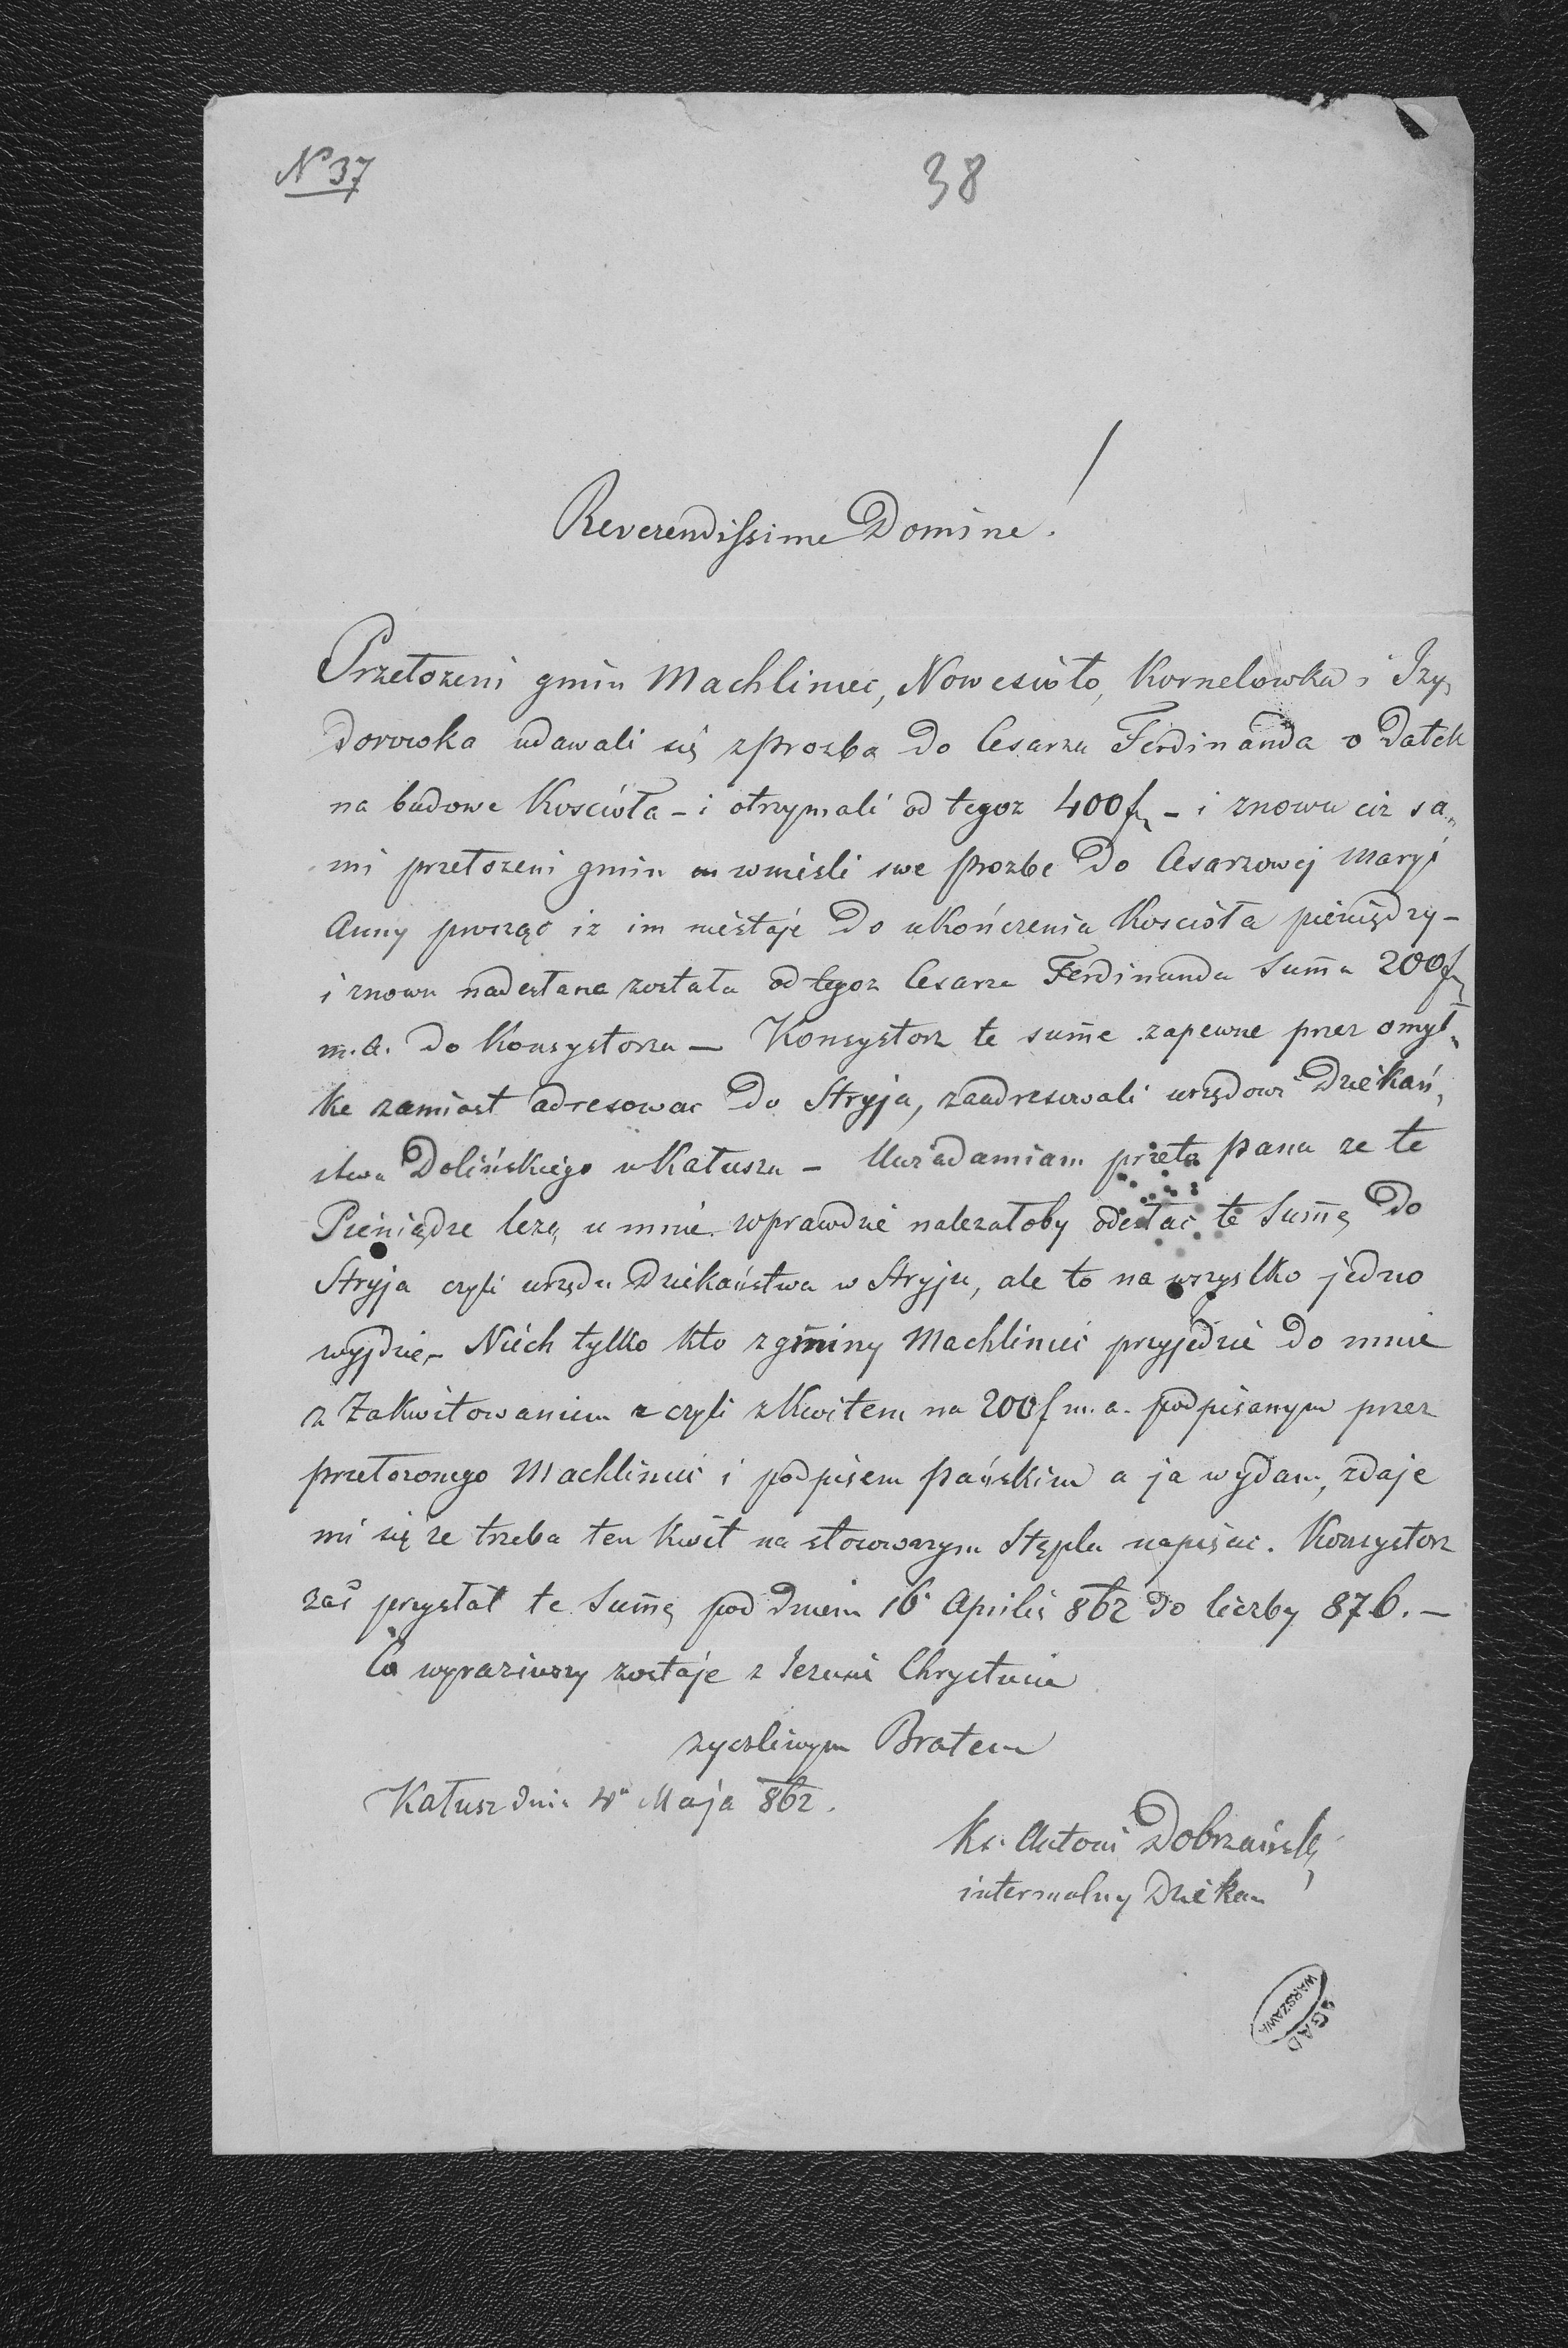 No 37
38
Reverendissime Domine!
Przełozeni gmin Machliniec, Nowesioło, Kornelowka i Izy,
dorowka udawali się z prozba do Cesarza Ferdinanda o datek
na budowe Koscioła - i otrzymali od tegoz 400 f - i znowu ciz sa„
mi przełozeni gmin wnieśli swe prozbe do Cesarzowej Maryi
Anny prosząc iz im niestaje do ukończenia Koscioła pieniędzy -
i znowu nadesłana została od tegoz Cesarza Ferdinanda Suma 200 f
m. a. do Konsystorza — Konsystorz te sume zapewne przez omył„
ke zamiast adresowac do Stryja, zaadresowali urzędowi Dziekań,
stwa Dolińskiego w Kałuszu - Uwiadamiam przeto Pana ze te
Pieniądze lezą u mnie wprawdzie nalezałoby odesłac te Sumę do
Stryja czyli urzędu Dziekaństwa w Stryju, ale to na wszystko jedno
wyjdzie - Niech tylko kto z gminy Machliniec przyjedzie do mnie
z Zakwitowaniem czyli z Kwitem na 200 f m. a. podpisanym przez
przełozonego Machliniec i podpisem Pańskim a ja wydam, zdaje
mi się ze trzeba ten Kwit na stosownym Stęplu napisac. Konsystorz
zaś przysłał te Sumę pod dniem 16 Aprilis 862 do liczby 876. —
Co wyraziwszy zostaje z Jezusie Chrystusie
zyczliwym Bratem
Kałusz dnia 4o Maja 862.
Ks. Antoni Dobrzański
intermalny Dziekan
AGAD
WARSZAWA